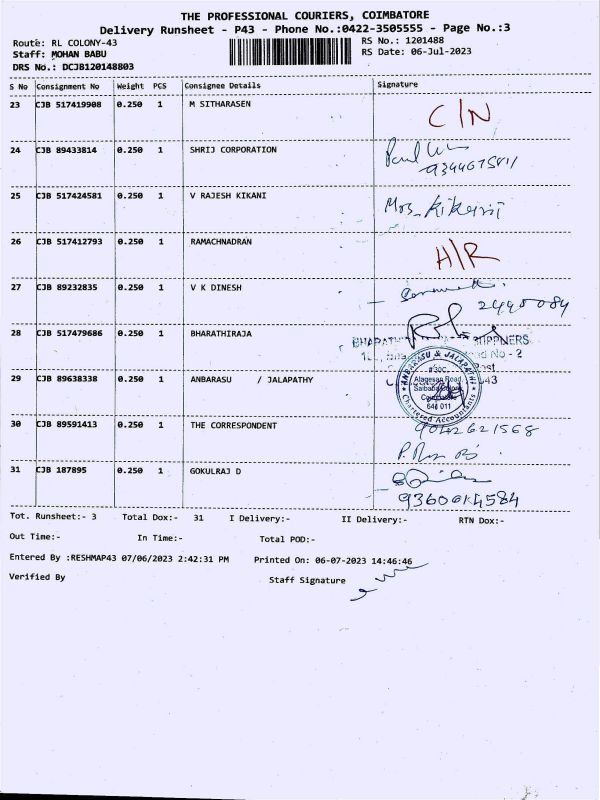 THE PROFESSIONAL COURIERS, COIMBATORE
Delivery Runsheet - P43 - Phone No.:0422-3505555 - Page No.:3
Route: RL COLONY-43 RS No.: 1201488
Staff: MOHAN BABU RS Date: 06-Jul-2023
DRS No.: DCJB120148803
S No Consignment No Weight PCS Consignee Details Signature
23 CJB 517419908 0.250 1 M SITHARASEN C/N
24 CJB 89433814 0.250 1 SHRIJ CORPORATION
25 CJB 517424581 0.250 1 V RAJESH KIKANI Mrs. Kikani
26 CJB 517412793 0.250 1 RAMACHNADRAN H/R
27 CJB 89232835 0.250 1 V K DINESH
28 CJB 517479686 0.250 1 BHARATHIRAJA
29 CJB 89638338 0.250 1 ANBARASU / JALAPATHY
ANBARASU & JALAPATHI
#30C,
Alagesan Road
Saibaba Colony
Coimbatore
641 011
Chartered Accountants
30 CJB 89591413 0.250 1 THE CORRESPONDENT 9042621568
31 CJB 187895 0.250 1 GOKULRAJ D
Tot. Runsheet:- 3 Total Dox:- 31 I Delivery:- II Delivery:- RTN Dox:-
Out Time:- In Time:- Total POD:-
Entered By :RESHMAP43 07/06/2023 2:42:31 PM Printed On: 06-07-2023 14:46:46
Verified By Staff Signature